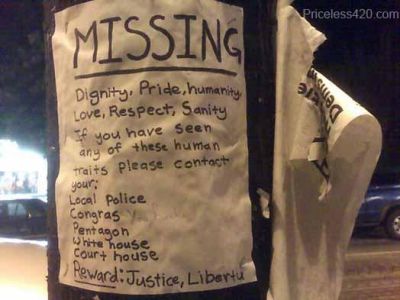 Priceless420.com
MISSING
Dignity, Pride, humanity,
Love, Respect, Sanity
If you have seen
any of these human
traits please contact
your;
Local Police
Congras
Pentagon
White house
Court house
Reward: Justice, Libertu